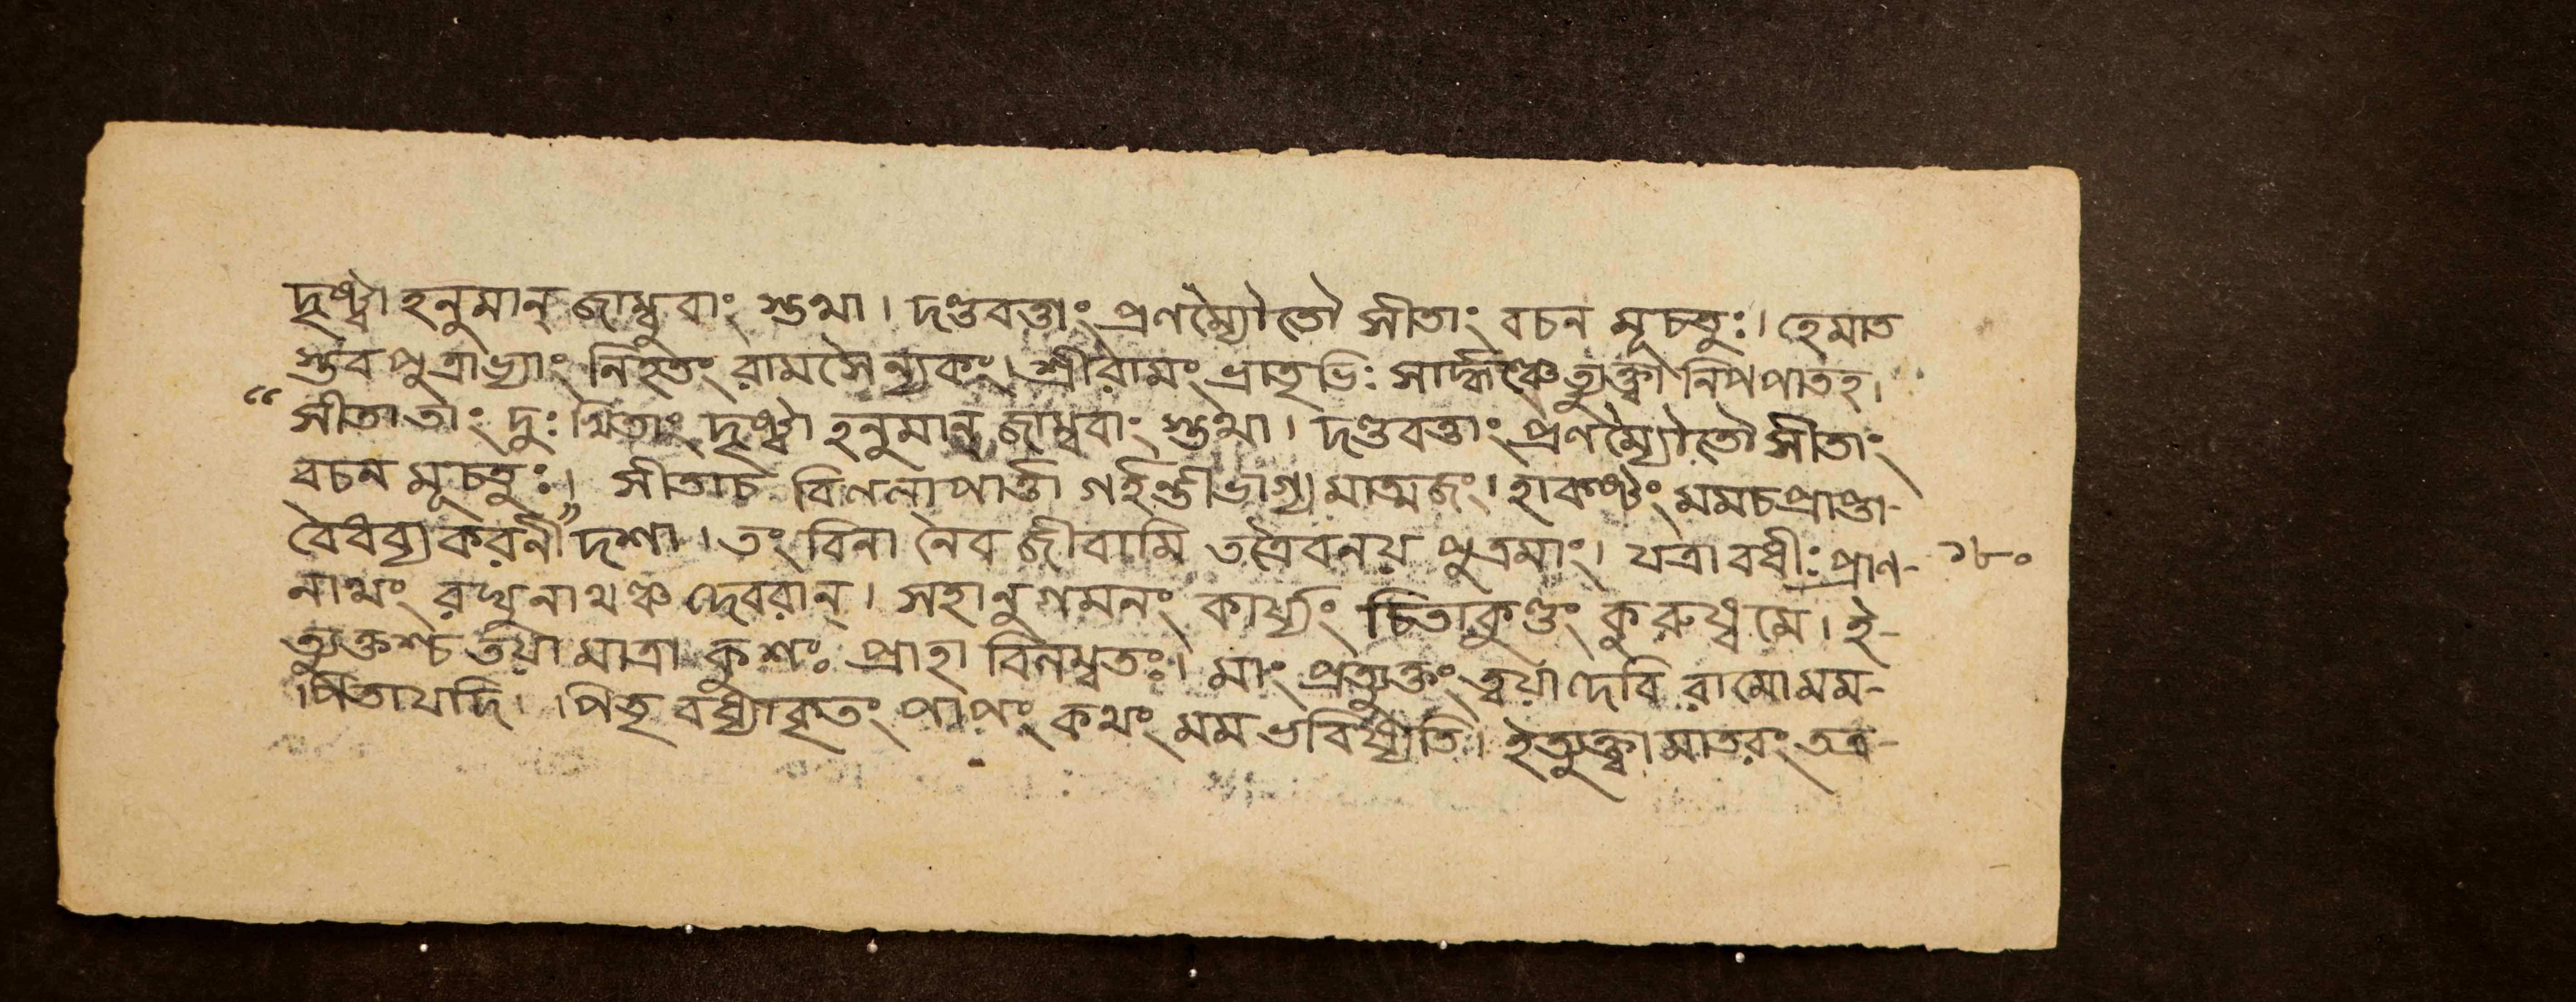 দৃষ্ট্বা হনুমান্ জাম্বুবাং স্তথা। দণ্ডবত্তাং প্রণম্যৈতৌ সীতাং বচন মূচতুঃ। হেমাত
স্তব পুত্রাভ্যাং নিহতং রামসৈন্যকং। শ্রীরামং ভ্রাতৃভিঃ সার্দ্ধঞ্চেত্যুক্ত্বা নিপপাতহ।
“সীতা তাং দুঃখিতাং দৃষ্ট্বা হনুমান্ জাম্ববাং স্তথা। দণ্ডবত্তাং প্রণম্যৈতৌ সীতাং
বচন মূচতুঃ। সীতাচ বিললাপার্ত্তা গর্হন্তীভাগ্য মাত্মজং। হাকষ্টং মমচপ্রাপ্তা-
বৈধব্যকরনী” দশা। তং বিনা নৈব জীবামি তত্রৈবনয় পুত্রমাং। যত্রাবধীঃ প্রাণ- ১৮০
নাথং রঘুনাথঞ্চ দেবরান্। সহানুগমনং কার্য্যং চিতাকুণ্ডং কুরুধ্বমে। ই-
ত্যুক্তশ্চ তয়া মাত্রা কুশঃ প্রাহা বিনম্বতঃ। মাং প্রত্যুক্তং ত্বয়া দেবি রামো মম-
পিতাযদি। পিতৃ বধ্যাকৃতং পাপং কথং মম ভবিষ্যতি। ইত্যুক্ত্বা মাতরং তত্র-